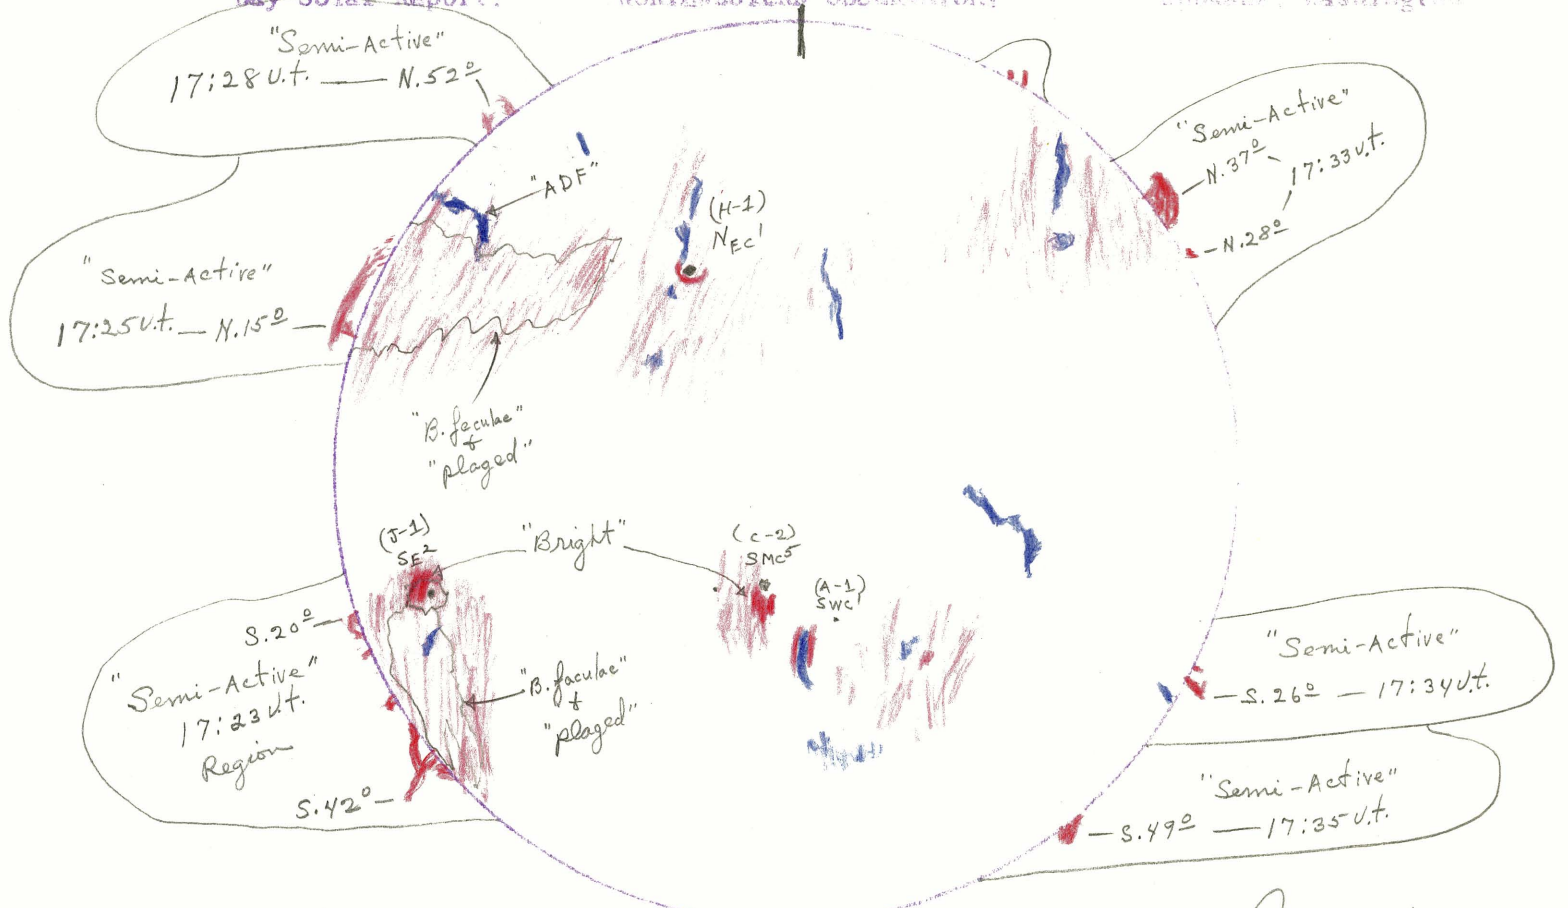 Solar Report.
"Semi-Active"
17:28 U.t. — N.52º
"Semi-Active"
N.37º
17:33 U.t.
N.28º
"ADF"
(H-1)
NEC1
"Semi-Active"
17:25 U.t. — N.15º
"B. faculae"
&
"plaged"
(J-1)
SE2
"Bright"
(C-2)
SMC5
(A-1)
SWC1
S.20º
"Semi-Active"
17:23 U.t.
Region
S.42º
"B. faculae"
&
"plaged"
"Semi-Active"
S.26º — 17:34 U.t.
"Semi-Active"
S.49º — 17:35 U.t.